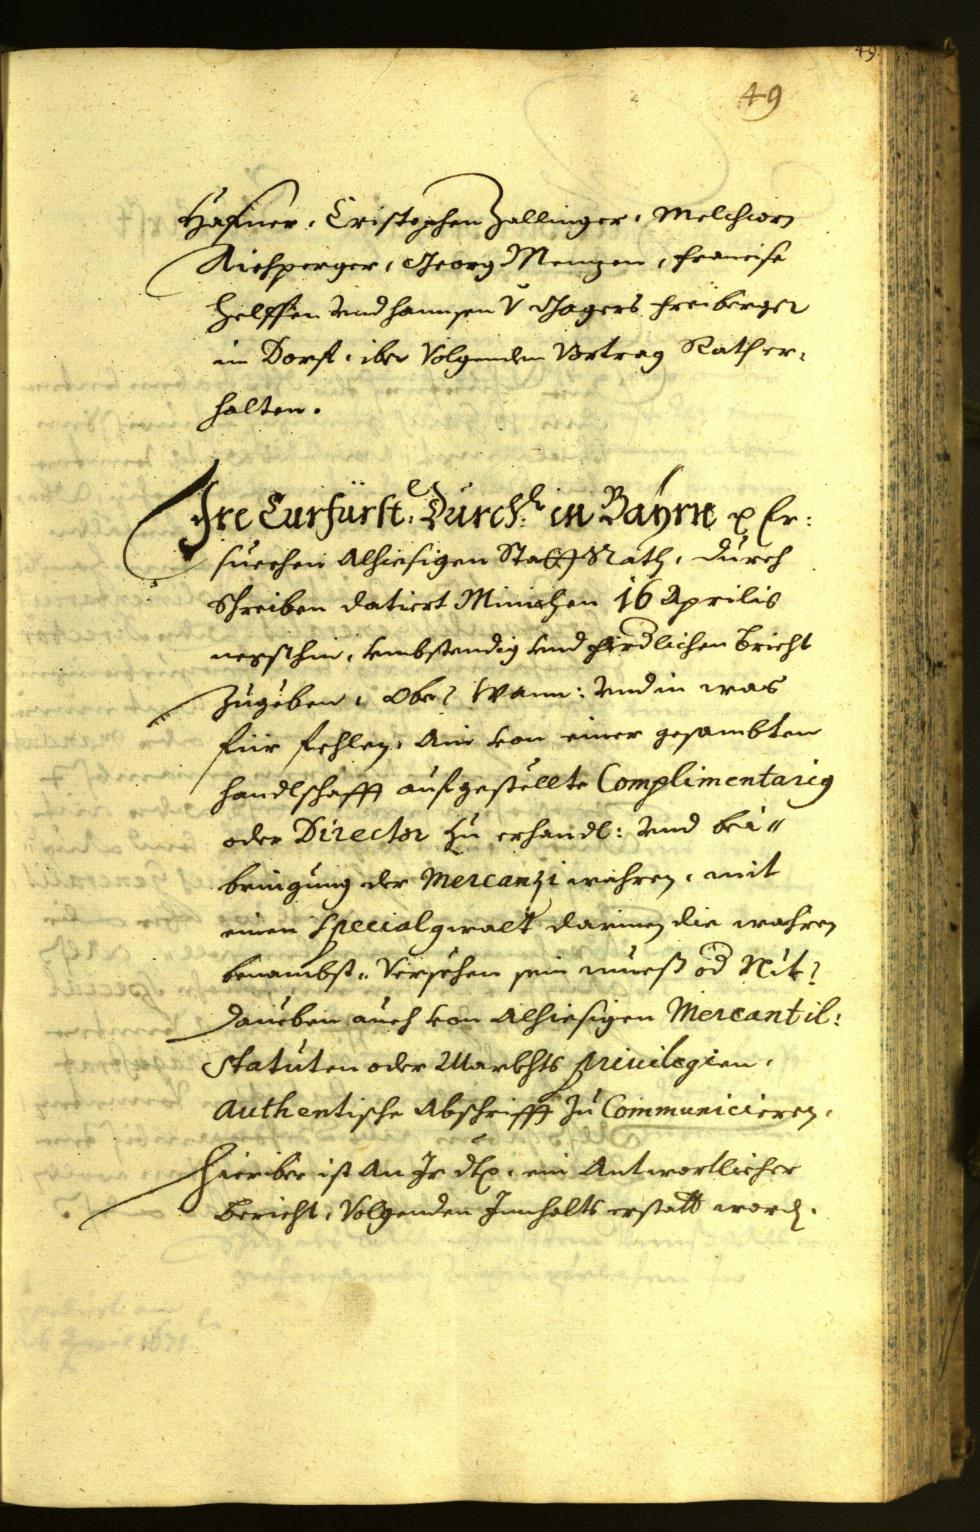 49.
49
Hafner, Cristophen Zallinger, Melchiorn
Kirchperger, Georg Menzen, Francisc
Helffen vnd Hannsen V Jagers Freiberger
in Dorf, iber Volgenden Vortrag Rath er-
halten.
Ire Curfürstl: Durchl: in Bayrn p Er:
suechen Alhiesigen StattRath, durch
Schreiben datiert Minichen 16 Aprilis
negsthin, vmbstendig vnd ferdlichen Bricht
Zugeben, Ober? Wann: Vnd in was
für fehlen, Ain von einer gesambten
handlschafft aufgestellte Complimentarig
oder Director Zu erhandl: Vnd bei"
bringung der Mercanzi wahren, mit
einen Specialgwalt darinen die wahren
benambst, Versehen sein muess od Nit?
Daneben auch von Alhiesigen Mercantil:
Statuten oder Markhts Priuilegien,
Authentische Abschrifft Zu Communicieren,
Hieriber ist An Ir dlp. ein Antwortlicher
Bericht, Volgenden Innhalts erstatt word.